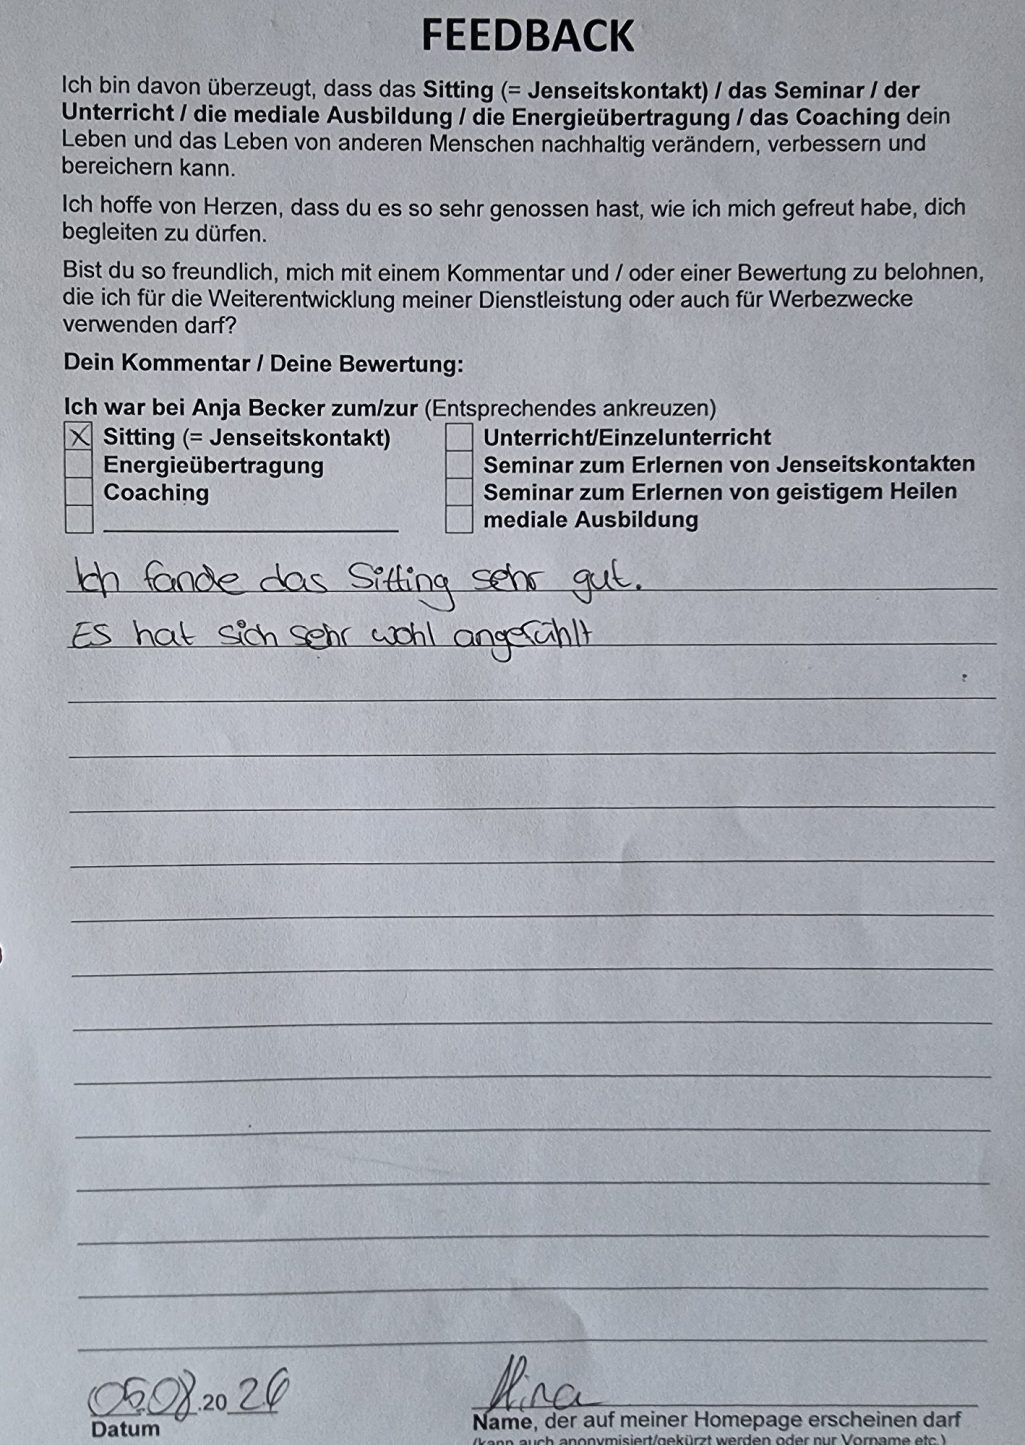 FEEDBACK
Ich bin davon überzeugt, dass das Sitting (= Jenseitskontakt) / das Seminar / der
Unterricht / die mediale Ausbildung / die Energieübertragung / das Coaching dein
Leben und das Leben von anderen Menschen nachhaltig verändern, verbessern und
bereichern kann.
Ich hoffe von Herzen, dass du es so sehr genossen hast, wie ich mich gefreut habe, dich
begleiten zu dürfen.
Bist du so freundlich, mich mit einem Kommentar und / oder einer Bewertung zu belohnen,
die ich für die Weiterentwicklung meiner Dienstleistung oder auch für Werbezwecke
verwenden darf?
Dein Kommentar / Deine Bewertung:
Ich war bei Anja Becker zum/zur (Entsprechendes ankreuzen)
X Sitting (= Jenseitskontakt)
Energieübertragung
Coaching
Unterricht/Einzelunterricht
Seminar zum Erlernen von Jenseitskontakten
Seminar zum Erlernen von geistigem Heilen
mediale Ausbildung
Ich fande das Sitting sehr gut.
Es hat sich sehr wohl angefühlt
05.08.2026
Datum
Name, der auf meiner Homepage erscheinen darf
(kann auch anonymisiert/gekürzt werden oder nur Vorname etc.)